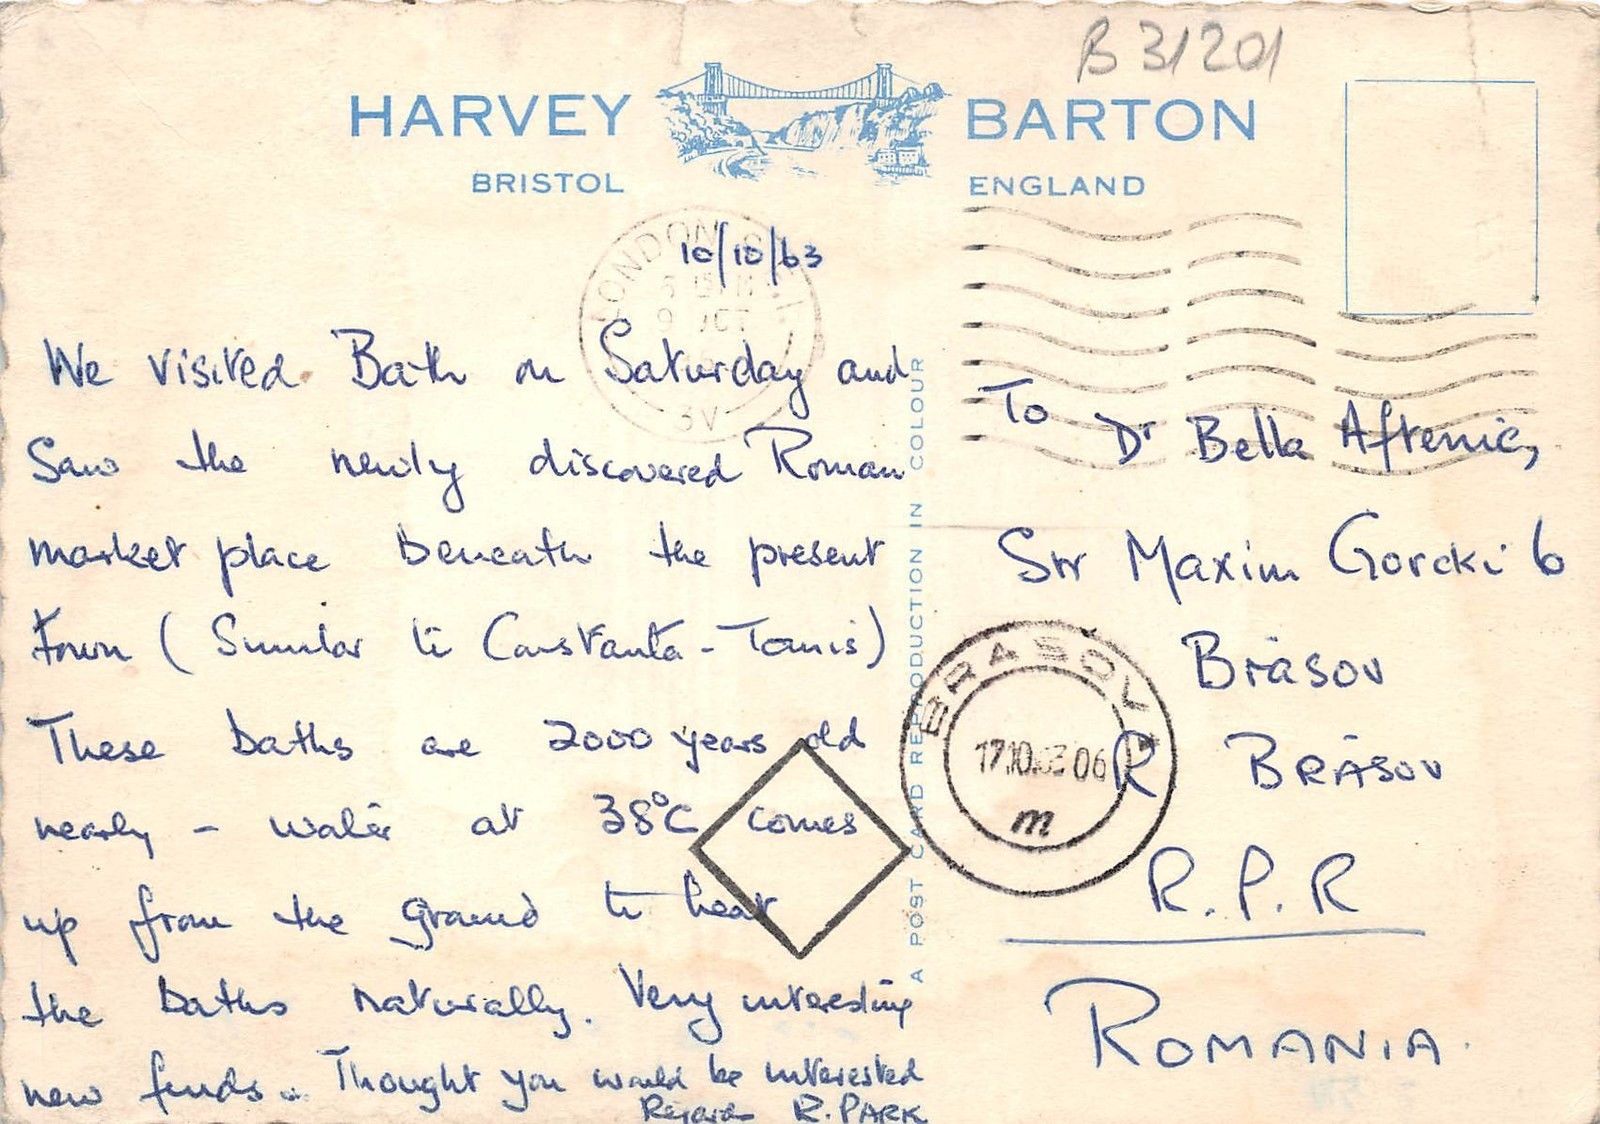 B 31201
HARVEY BARTON
BRISTOL ENGLAND
LONDON
10/10/63
9 OCT
We visited Bath on Saturday and
Saw the newly discovered Roman
market place beneath the present
town (Similar to Constanta-Tomis)
These baths are 2000 years old
nearly - water at 38°C comes
up from the ground to heat
the baths naturally. Very interesting
new finds.. Thought you would be interested
Regards R. PARK
A POST CARD REPRODUCTION IN COLOUR
To Dr Bella Aftenic,
Str Maxim Gorcki 6
Brăsov
R BRĂSOV
R.P.R
ROMANIA.
BRASOV
17.10.63 06
m